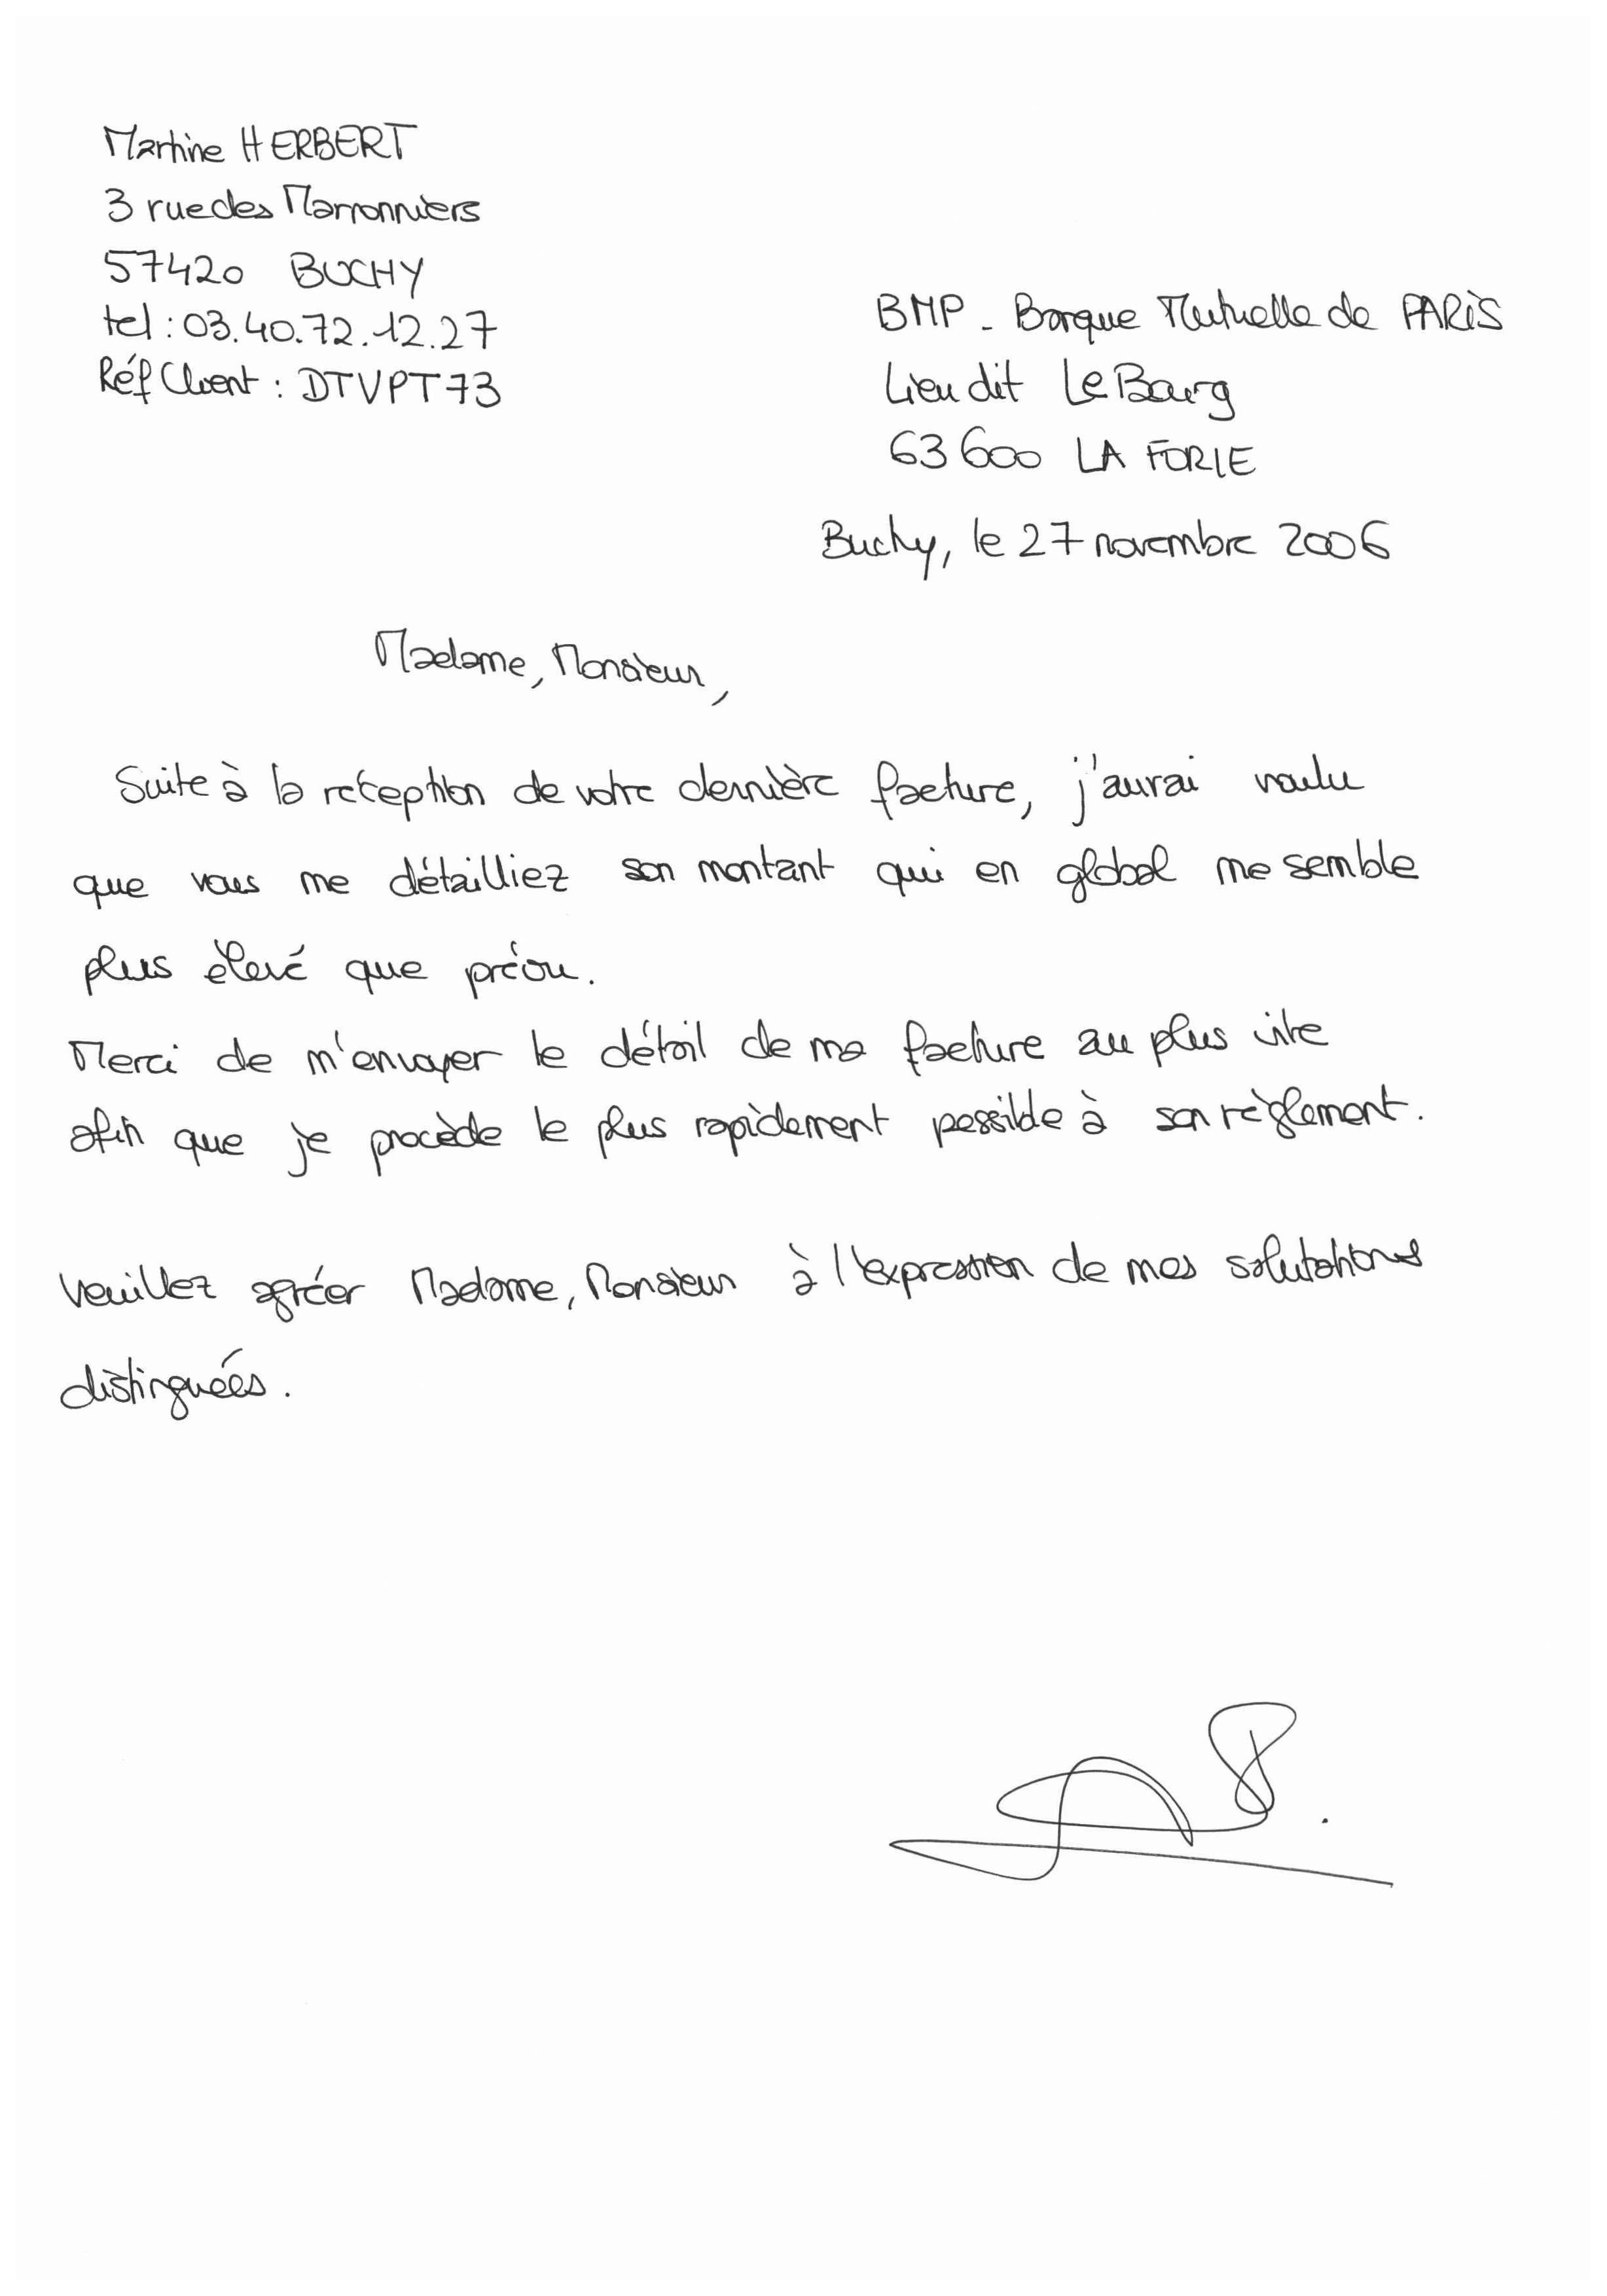 Martine HERBERT
3 rue des Marronniers
57420 BUCHY
tel : 03.40.72.12.27
Réf Client : DTVPT73
BMP - Banque Mutuelle de PARIS
Lieu dit Le Bourg
63600 LA FORIE
Buchy, le 27 novembre 2006
Madame, Monsieur,
Suite à la réception de votre dernière facture, j'aurai voulu
que vous me détailliez son montant qui en global me semble
plus élevé que prévu.
Merci de m'envoyer le détail de ma facture au plus vite
afin que je procède le plus rapidement possible à son règlement.
Veuillez agréer Madame, Monsieur à l'expression de mes salutations
distinguées.